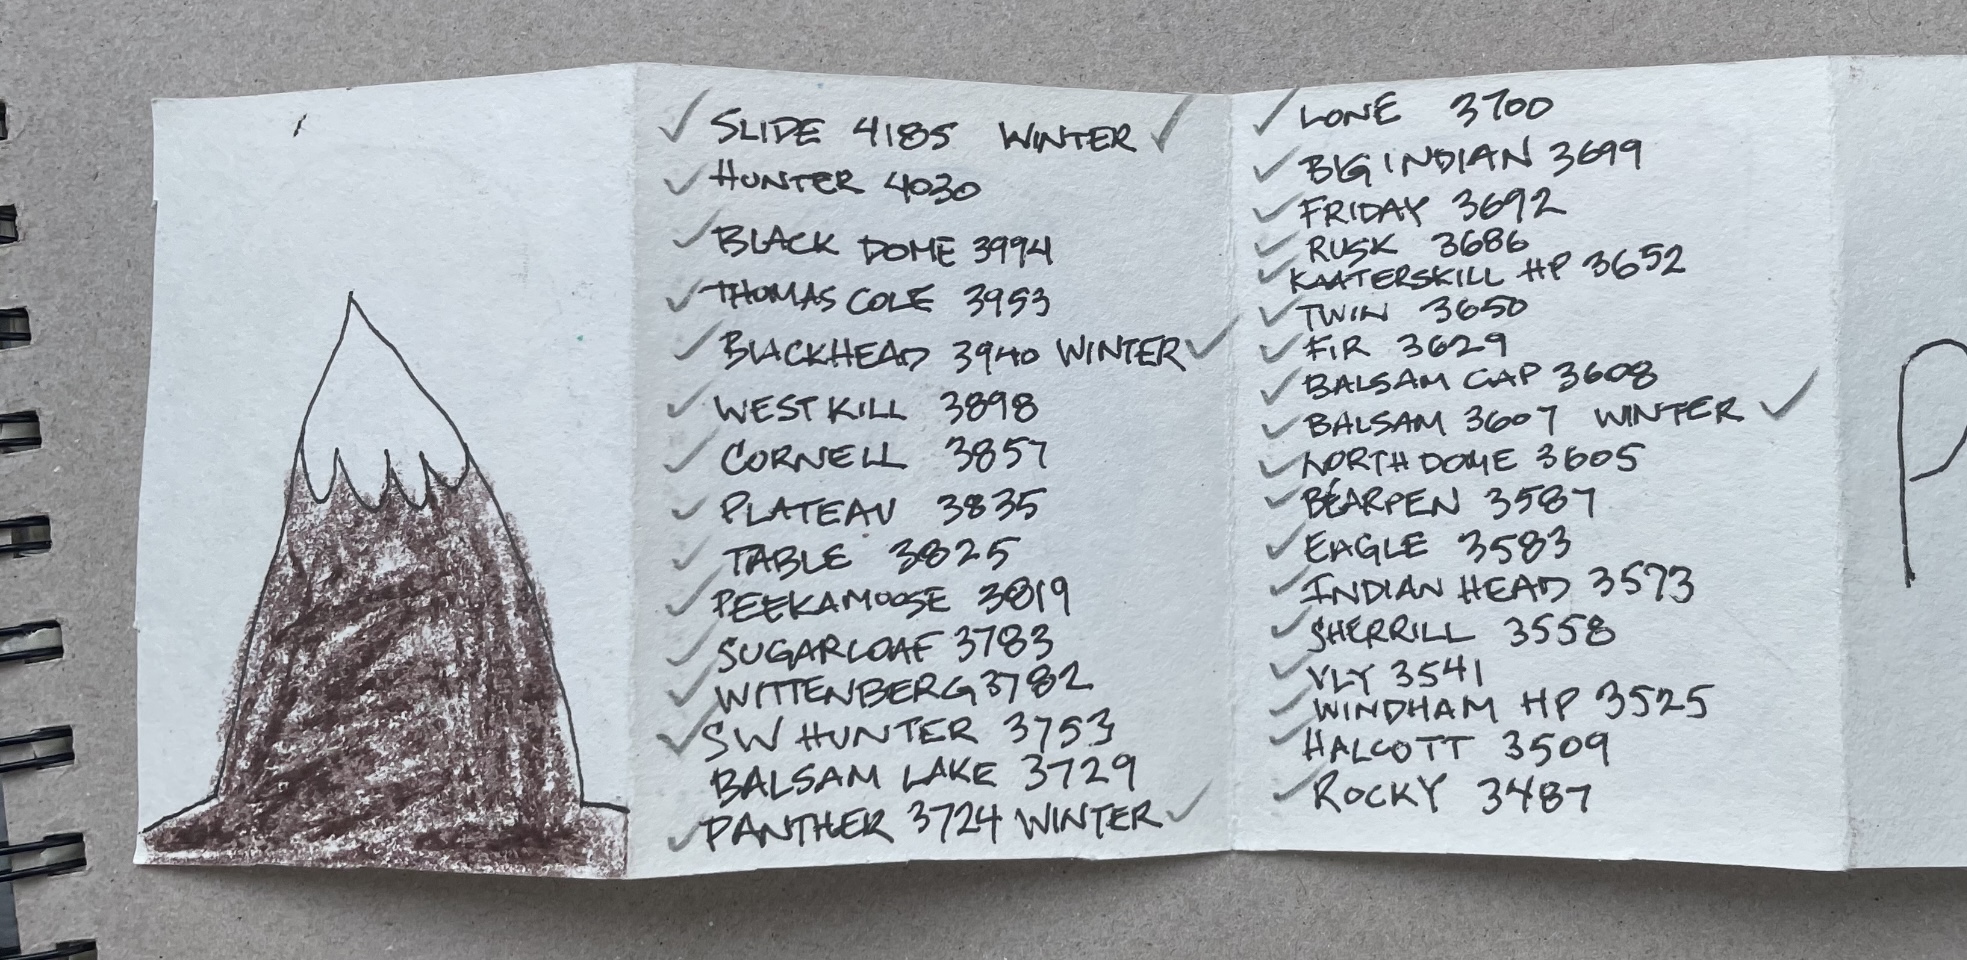 ✓ SLIDE 4185 WINTER ✓
✓ HUNTER 4030
✓ BLACK DOME 3994
✓ THOMAS COLE 3953
✓ BLACKHEAD 3940 WINTER ✓
✓ WEST KILL 3898
✓ CORNELL 3857
✓ PLATEAU 3835
✓ TABLE 3825
✓ PEEKAMOOSE 3819
✓ SUGARLOAF 3783
✓ WITTENBERG 3782
✓ SW HUNTER 3753
BALSAM LAKE 3729
✓ PANTHER 3724 WINTER ✓
✓ LONE 3700
✓ BIG INDIAN 3699
✓ FRIDAY 3692
✓ RUSK 3686
✓ KAATERSKILL HP 3652
✓ TWIN 3650
✓ FIR 3629
✓ BALSAM CAP 3608
✓ BALSAM 3607 WINTER ✓
✓ NORTH DOME 3605
✓ BEARPEN 3587
✓ EAGLE 3583
✓ INDIAN HEAD 3573
✓ SHERRILL 3558
✓ VLY 3541
✓ WINDHAM HP 3525
✓ HALCOTT 3509
✓ ROCKY 3487
P